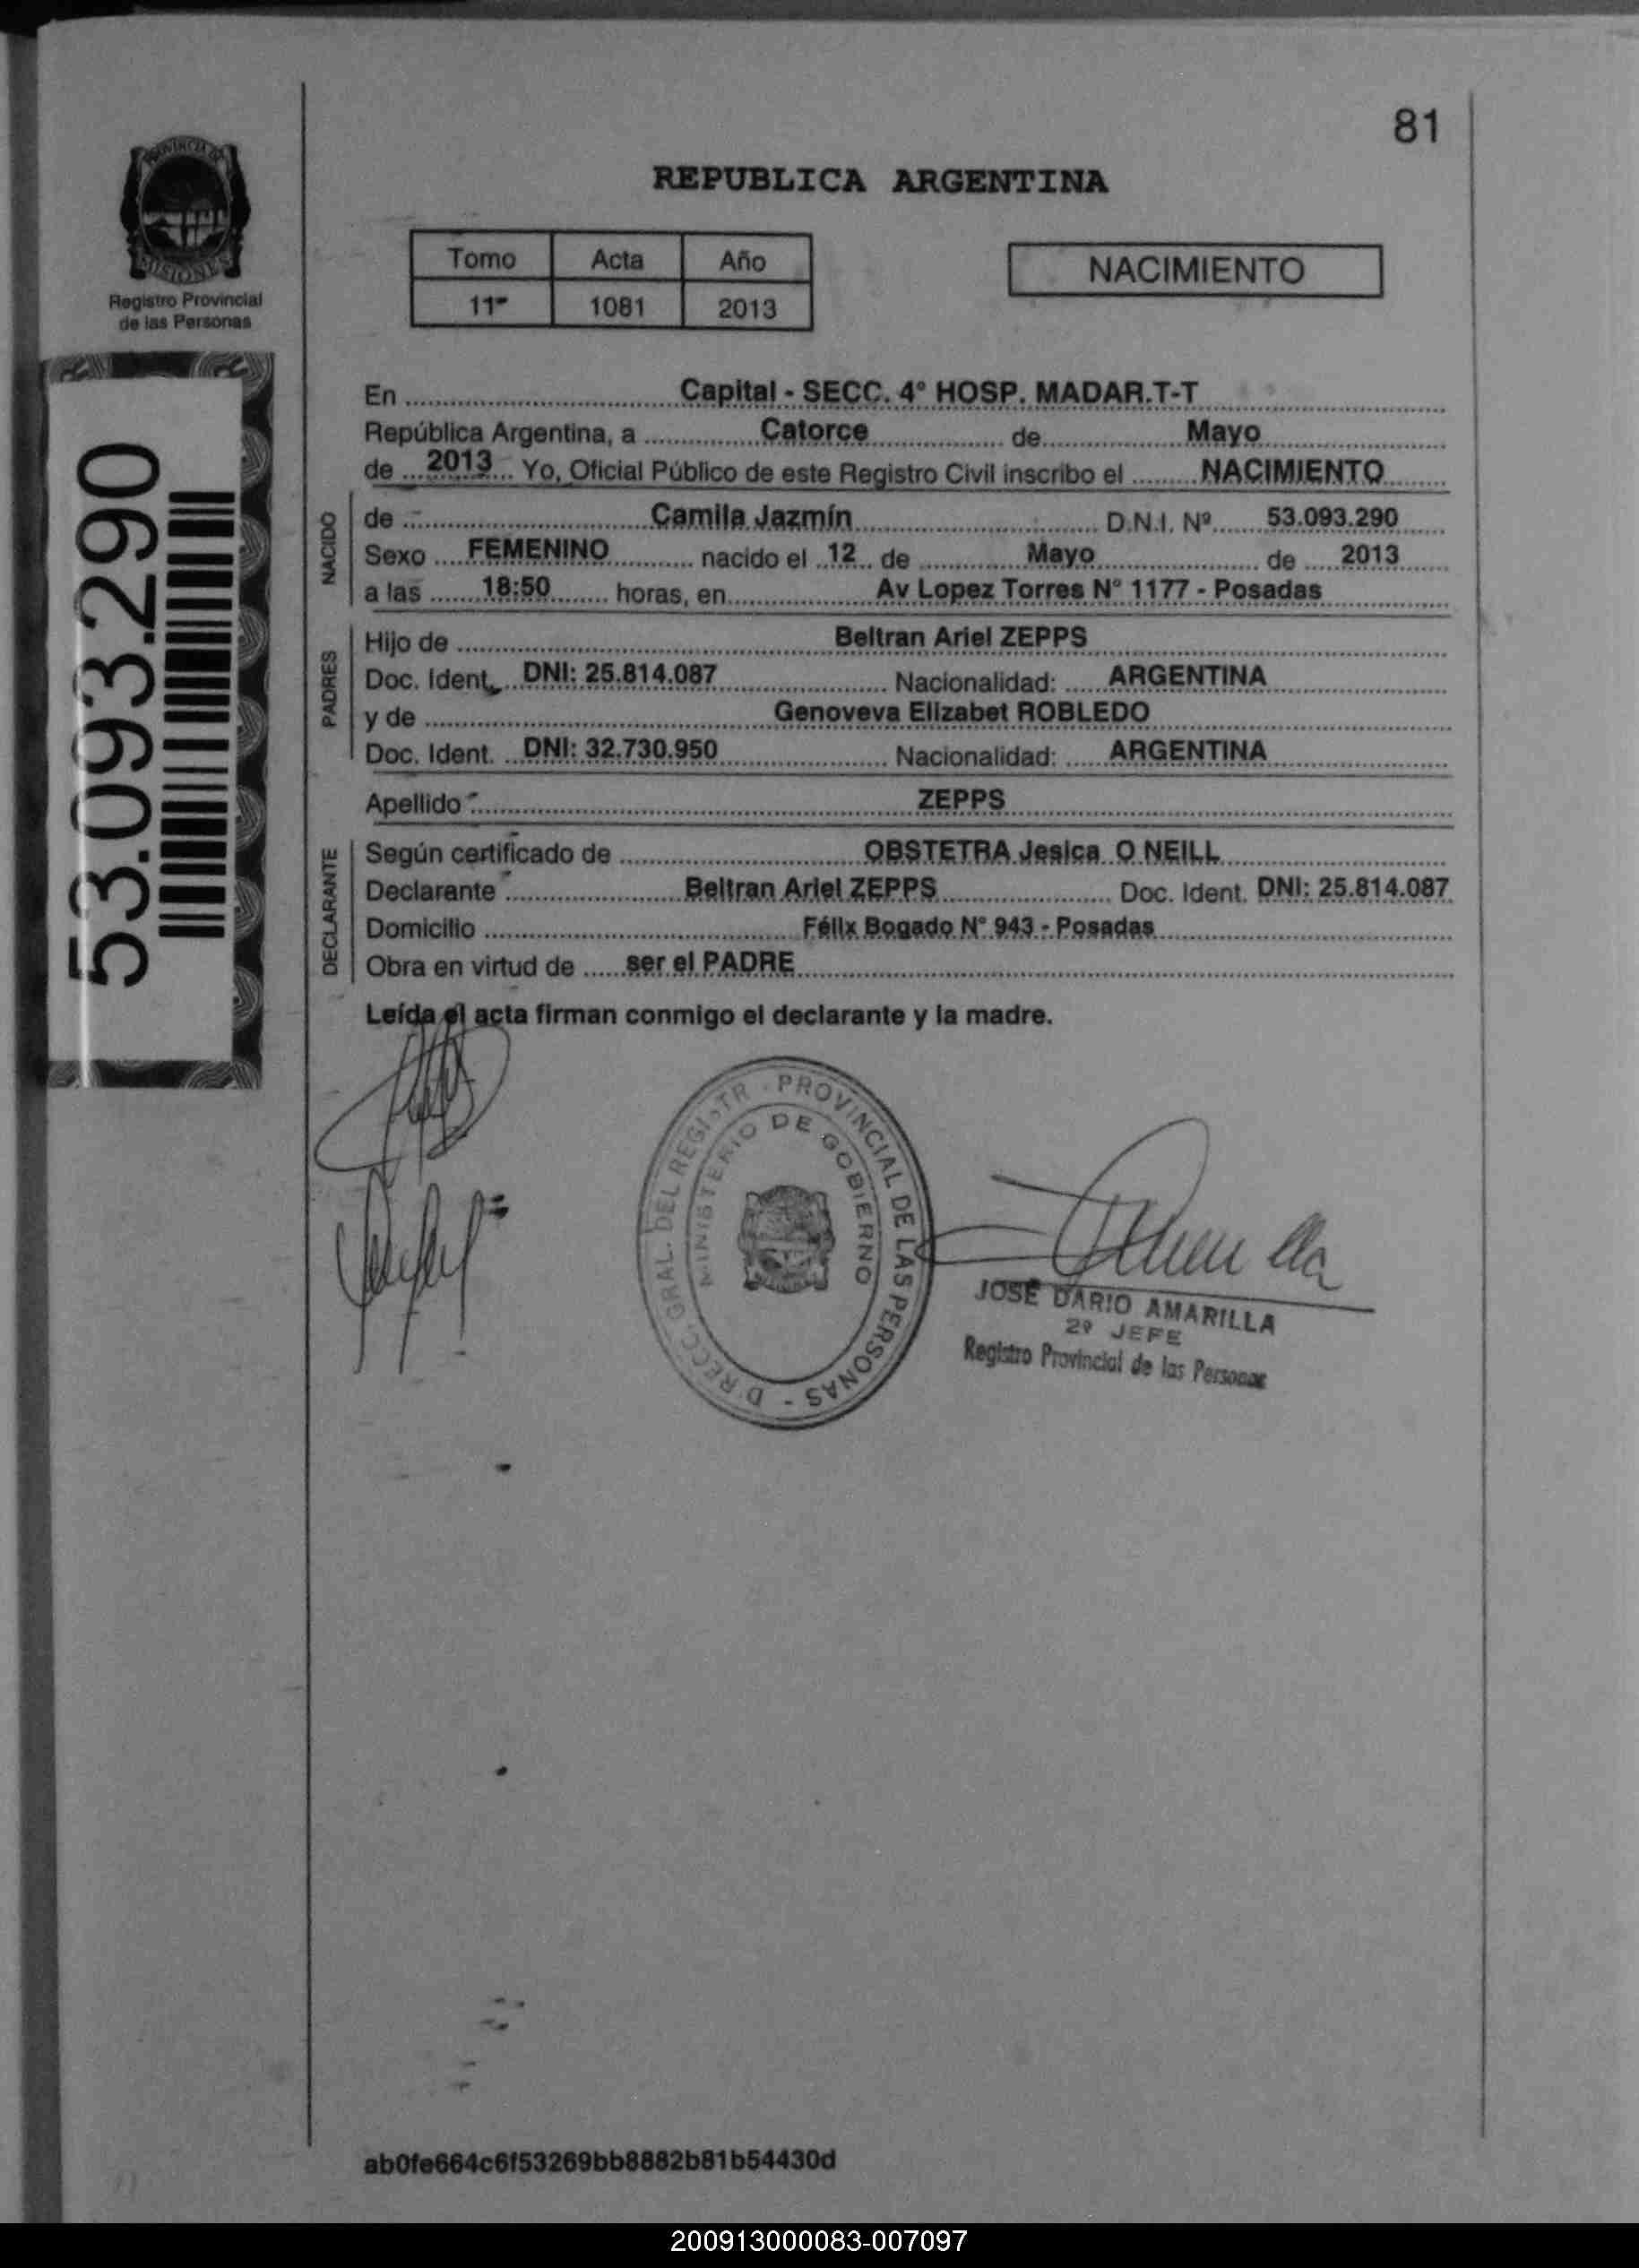 81
PROVINCIA DE
MISIONES
Registro Provincial
de las Personas
REPUBLICA ARGENTINA
Tomo Acta Año
11º 1081 2013
NACIMIENTO
53.093.290
En Capital - SECC. 4º HOSP. MADAR.T-T
República Argentina, a Catorce de Mayo
de 2013 Yo, Oficial Público de este Registro Civil inscribo el NACIMIENTO
NACIDO
de Camila Jazmín D.N.I. Nº 53.093.290
Sexo FEMENINO nacido el 12 de Mayo de 2013
a las 18:50 horas, en Av Lopez Torres Nº 1177 - Posadas
PADRES
Hijo de Beltran Ariel ZEPPS
Doc. Ident. DNI: 25.814.087 Nacionalidad: ARGENTINA
y de Genoveva Elizabet ROBLEDO
Doc. Ident. DNI: 32.730.950 Nacionalidad: ARGENTINA
Apellido ZEPPS
DECLARANTE
Según certificado de OBSTETRA Jesica O NEILL
Declarante Beltran Ariel ZEPPS Doc. Ident. DNI: 25.814.087
Domicilio Félix Bogado Nº 943 - Posadas
Obra en virtud de ser el PADRE
Leída el acta firman conmigo el declarante y la madre.
DIRECC. GRAL. DEL REGISTR PROVINCIAL DE LAS PERSONAS -
MINISTERIO DE GOBIERNO
JOSÉ DARIO AMARILLA
2º JEFE
Registro Provincial de las Personas
ab0fe664c6f53269bb8882b81b54430d
200913000083-007097